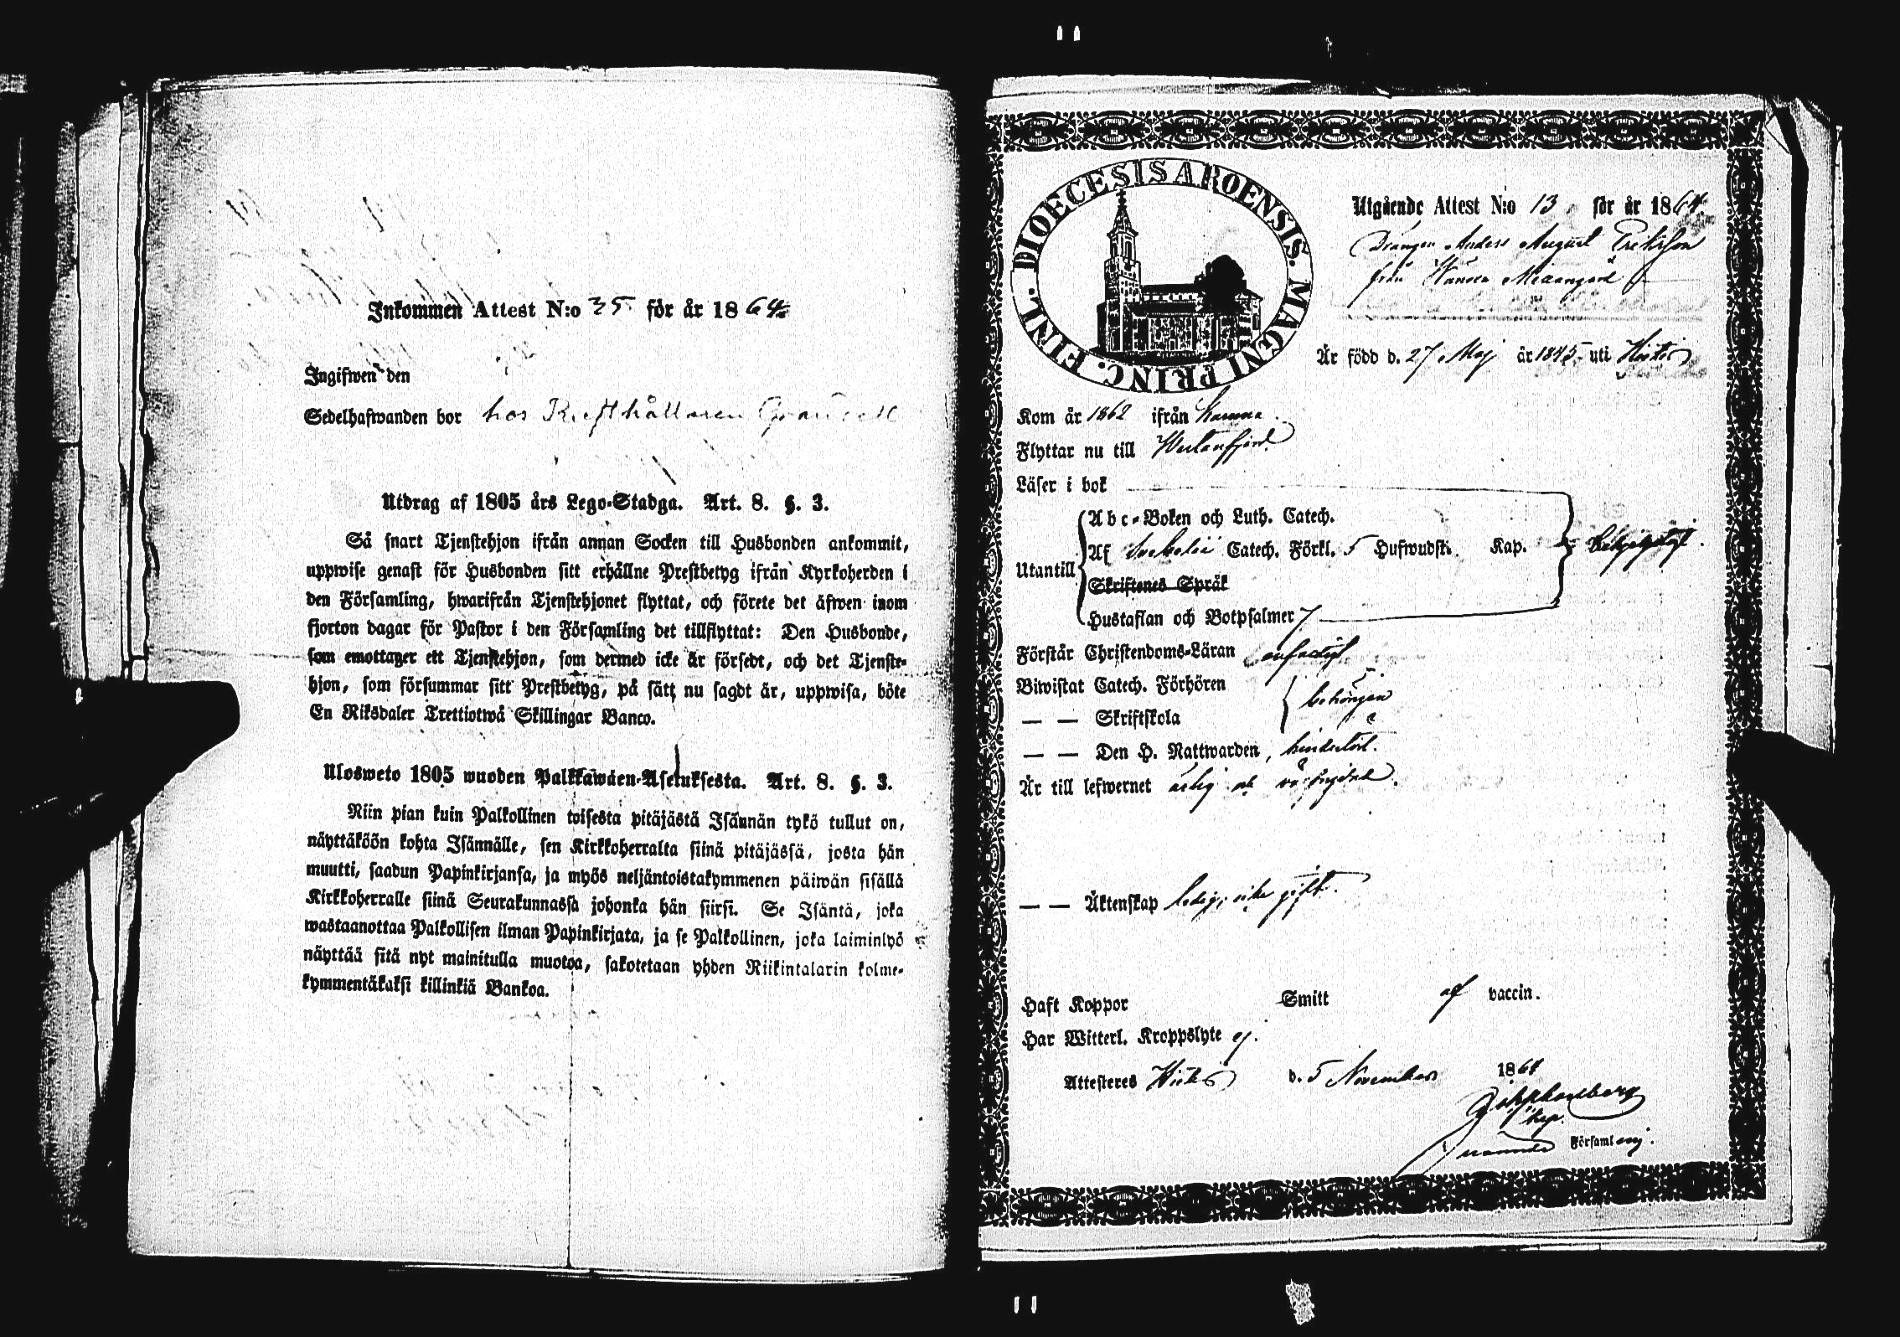 Inkommen Attest N:o 35 för år 1864
Ingifwen den
Sedelhafwanden bor hos Rusthållaren
Utdrag af 1805 års Lego-Stadga. Art. 8. §. 3.
Så snart Tjenstehjon ifrån annan Socken till Husbonden ankommit,
uppwise genast för Husbonden sitt erhållne Prestbetyg ifrån Kyrkoherden i
den Församling, hwarifrån Tjenstehjonet flyttat, och förete det äfwen inom
fjorton dagar för Pastor i den Församling det tillflyttat: Den Husbonde,
som emottager ett Tjenstehjon, som dermed icke är försedt, och det Tjenste-
hjon, som försummar sitt Prestbetyg, på sätt nu sagdt är, uppwisa, böte
En Riksdaler Trettiotwå Skillingar Banco.
Ulosweto 1805 wuoden Palkkawäen-Asetuksesta. Art. 8. §. 3.
Niin pian kuin Palkollinen toisesta pitäjästä Isännän tykö tullut on,
näyttäköön kohta Isännälle, sen Kirkkoherralta siinä pitäjässä, josta hän
muutti, saadun Papinkirjansa, ja myös neljäntoistakymmenen päiwän sisällä
Kirkkoherralle siinä Seurakunnassa johonka hän siirsi. Se Isäntä, joka
wastaanottaa Palkollisen ilman Papinkirjata, ja se Palkollinen, joka laiminlyö
näyttää sitä nyt mainitulla muotoa, sakotetaan yhden Riikintalarin kolme-
kymmentäkaksi killinkiä Bankoa.
DIOECESIS AROENSIS. MAGNI PRINC. FINL.
Utgående Attest N:o 13 för år 1864
Drängen Anders August
från
Är född d. 27 Maj år 1845 uti
Kom år 1862 ifrån Karuna
Flyttar nu till Westanfjerd
Läser i bok
Abc-Boken och Luth. Catech.
Af Svebelii Catech. Förkl. 5 Hufwudst. Kap.
Utantill
Skriftenes Språk
Hustaflan och Botpsalmer 7
Förstår Christendoms-Läran enfaldigt
Biwistat Catech. Förhören
— — Skriftskola behörigen
— — Den H. Nattwarden, hindertöst.
Är till lefwernet ärlig och
— — Äktenskap ledig, icke gift.
Haft Koppor Smitt af vaccin.
Har Witterl. Kroppslyte ej.
Attesteres d. 5 November 1864
Församl